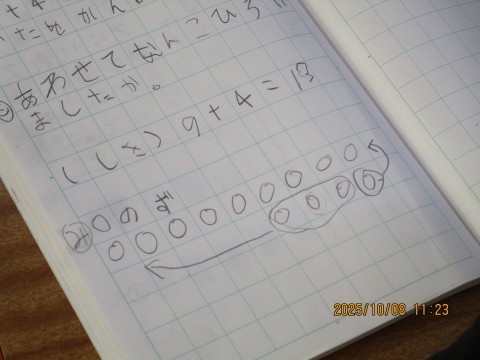 あわせてなんこひろい
ましたか。
(しき) 9+4=13
○のず
2025/10/08 11:23